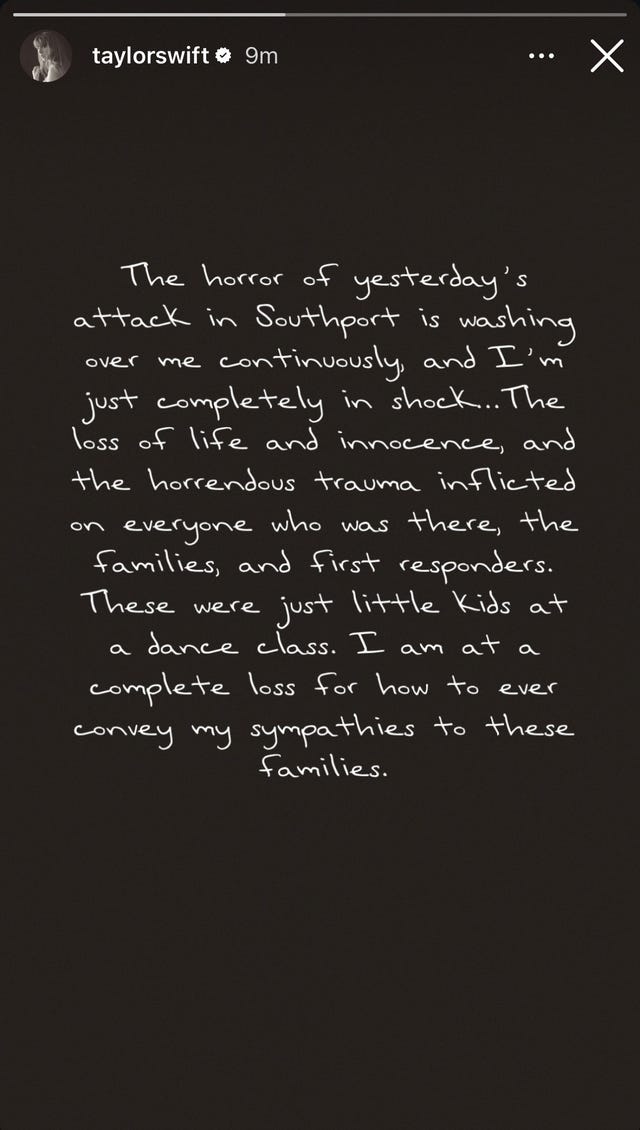 taylorswift 9m
The horror of yesterday's
attack in Southport is washing
over me continuously, and I'm
just completely in shock...The
loss of life and innocence, and
the horrendous trauma inflicted
on everyone who was there, the
families, and first responders.
These were just little kids at
a dance class. I am at a
complete loss for how to ever
convey my sympathies to these
families.